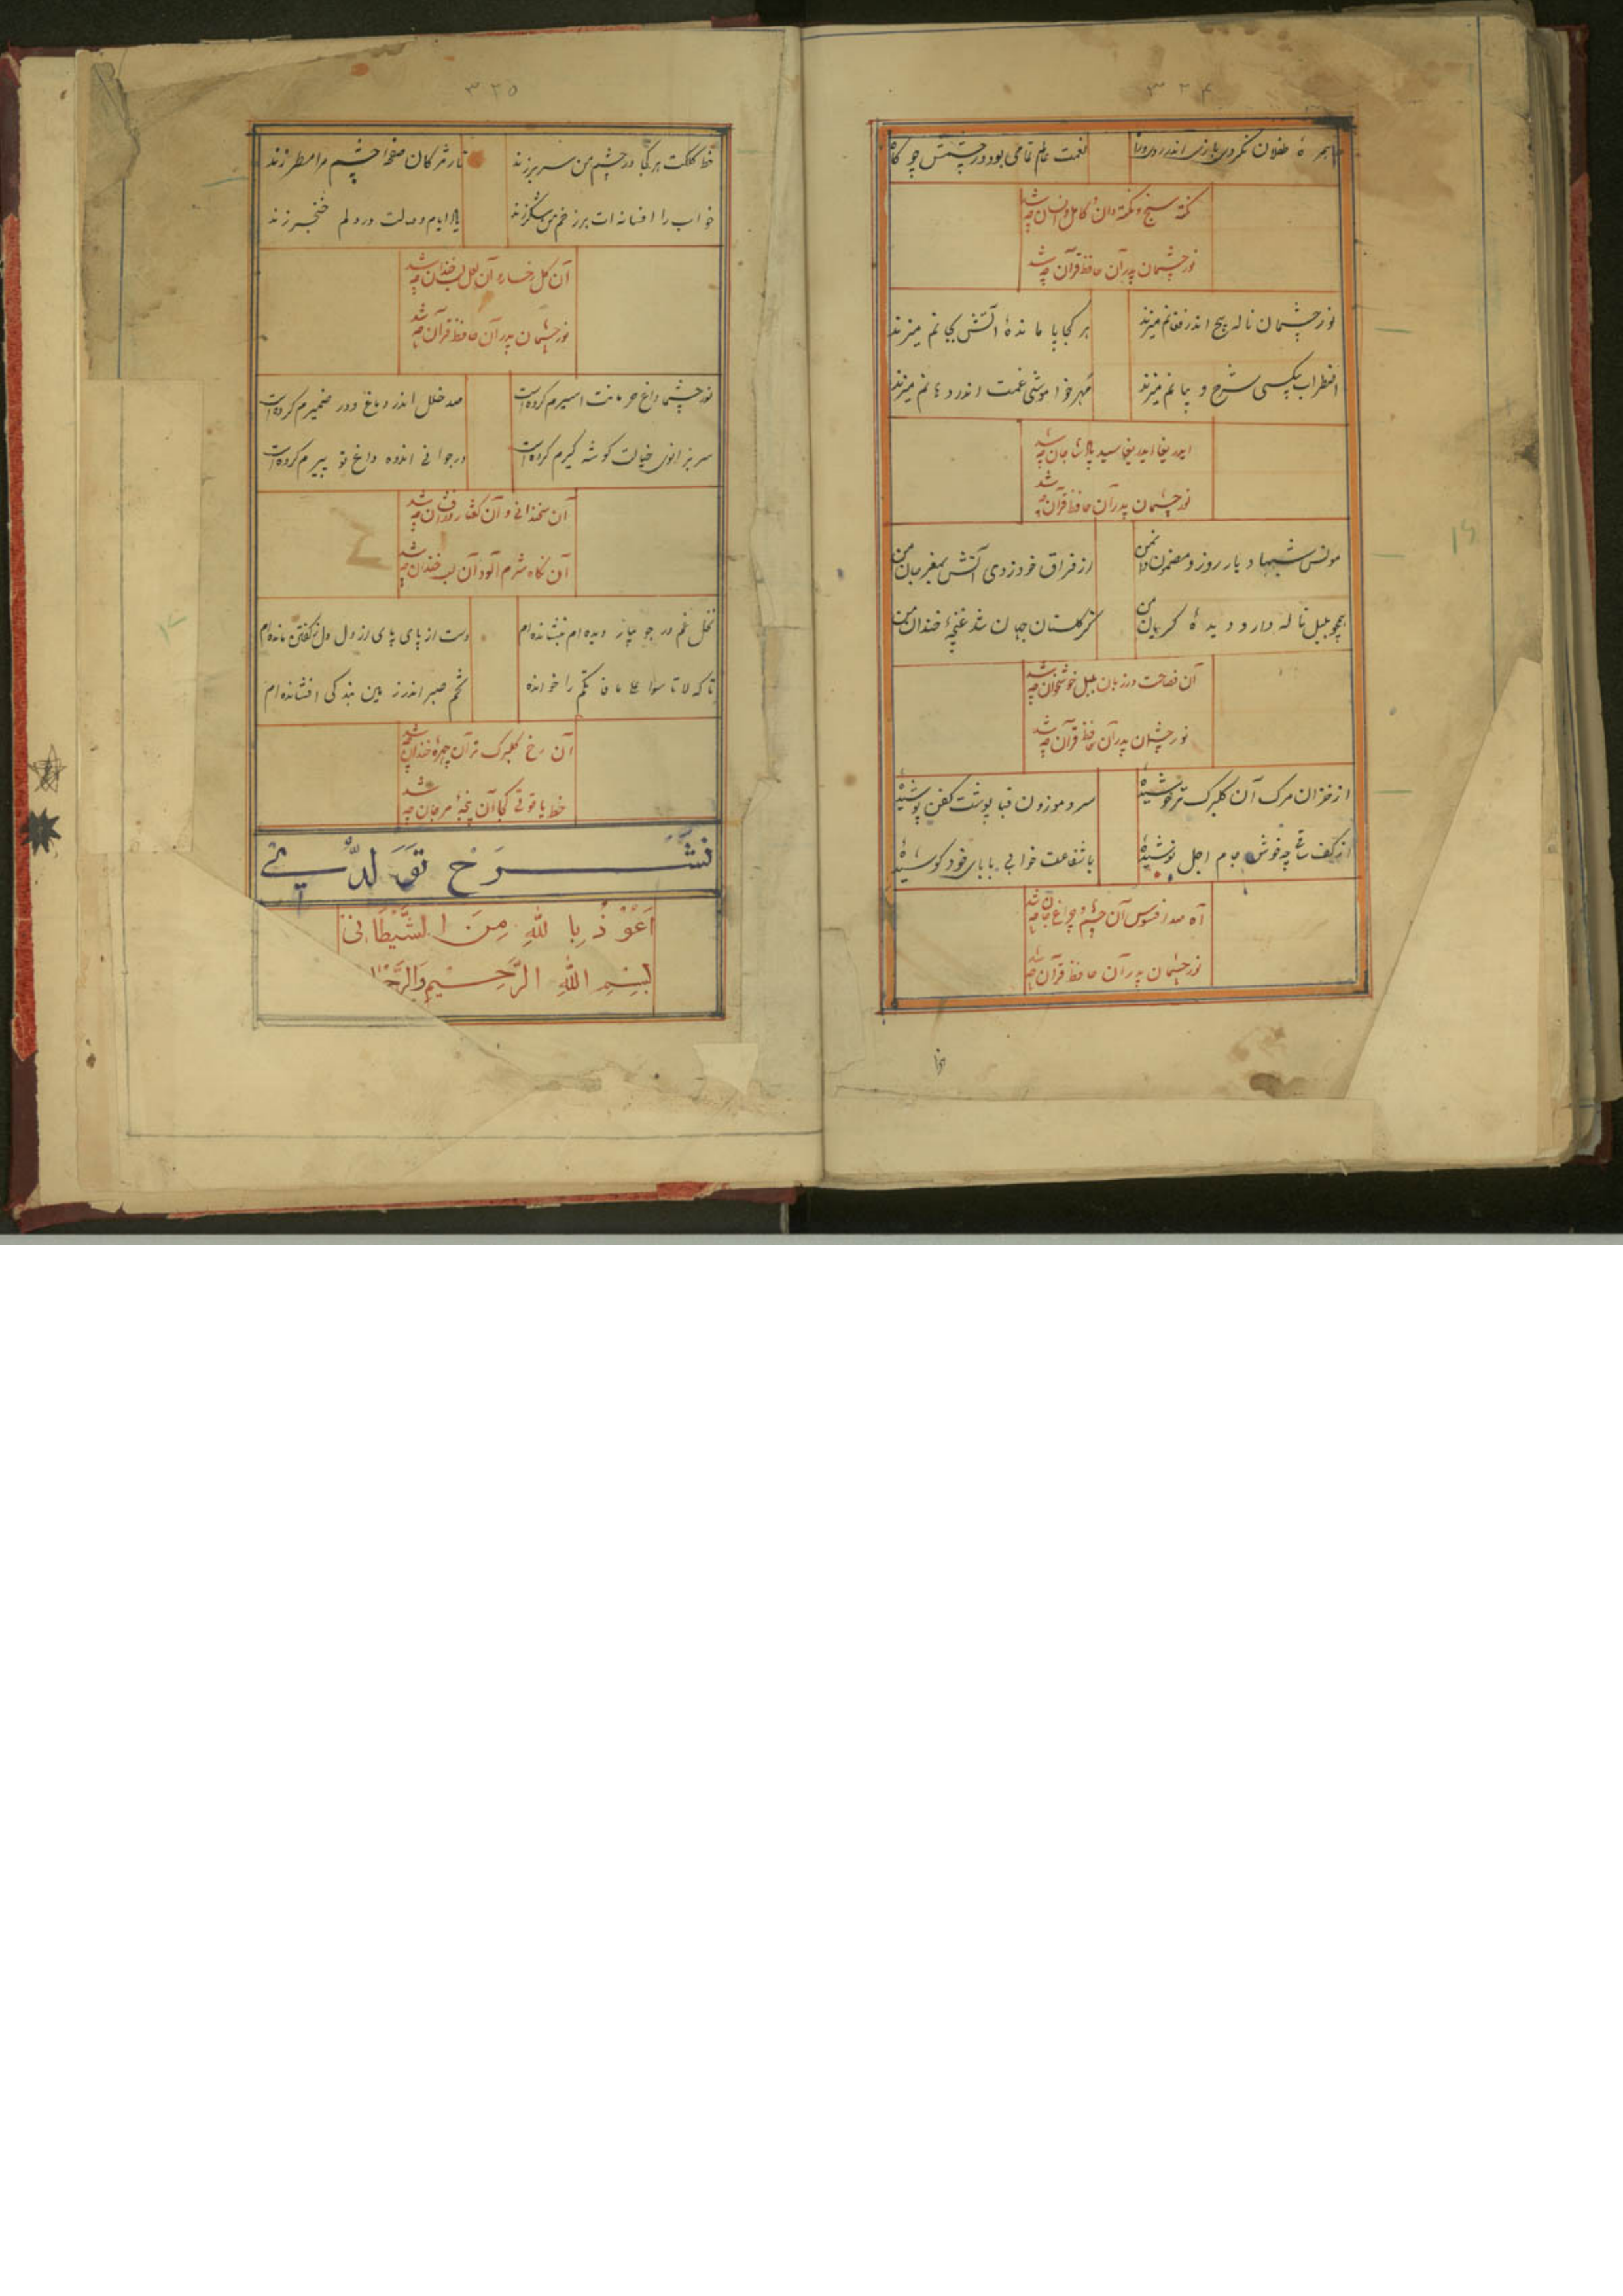 ۳۲۴
همره طفلان نکردی بازی اندر روزها نعمت عالم تمامی بود در چشمش چو کاه
نکته سنج و نکته دان و کامل دوران چه شد
نور چشمان پدر آن حافظ قرآن چه شد
نور چشمان ناله پیچ اندر فغانم میزند هر کجا پا مانده آتش بجانم میزند
اضطراب بیکسی شرح و بیانم میزند مهر خاموشی غمت اندر دهانم میزند
ایدریغا ایدریغا سید پاشا جان چه شد
نور چشمان پدر آن حافظ قرآن چه شد
مونس شبها و یار روز و مضمون دان من از فراق خود زدی آتش بمغز جان من
همچو بلبل ناله دارد دیدهٔ گریان من کز گلستان جهان شد غنچهٔ خندان من
آن فصاحت در زبان بلبل خوشخوان چه شد
نور چشمان پدر آن حافظ قرآن چه شد
از خزان مرگ آن گلبرگ تر خوشیدهٔ سرو موزون قبا پوشت کفن پوشیدهٔ
از کف ساقی چه خوش جام اجل نوشیدهٔ با شفاعت خوابی بابای خود کوشیدهٔ
آه صد افسوس آن چشم و چراغ جان چه شد
نور چشمان پدر آن حافظ قرآن چه شد
۳۲۵
خط کلکت هر کجا در چشم من سر بر زند تار مژگان صفحهٔ چشم مرا مسطر زند
خواب را افسانه ات بر زخم من شکر زند یاد ایام وصالت در دلم خنجر زند
آن گل رخساره آن لعل لب خندان چه شد
نور چشمان پدر آن حافظ قرآن چه شد
نور چشما داغ حرمانت اسیرم کرده است صد خلل اندر دماغ و در ضمیرم کرده است
سر بزانوی خیالت گوشه گیرم کرده است در جوانی اندوه داغ تو پیرم کرده است
آن سخندانی و آن گفتار در افشان چه شد
آن نگاه شرم آلود آن لب خندان چه شد
نخل غم در جویبار دیده ام بنشانده ام دست از پای پای از دل دل ز گفتن مانده ام
تا که لا تأسوا علی ما فاتکم را خوانده تخم صبر اندر زمین بندگی افشانده ام
آن رخ گلبرگ تر آن چهرهٔ خندان چه شد
خط یاقوتی کجا آن پنجهٔ مرجان چه شد
شرح تولدی
اعوذ بالله من الشیطان
بسم الله الرحیم والرحمن